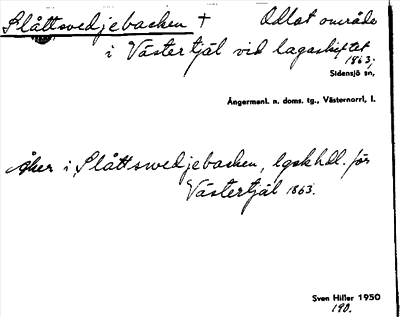 Slåttsvedjebacken † Odlat område
i Västertjäl vid lagaskiftet
1863;
Sidensjö sn,
Ångermanl. n. doms. tg., Västernorrl, l.
åker i Slåttswedjebacken, lgskhdl. för
Västertjäl 1863.
Sven Hiller 1950
190.